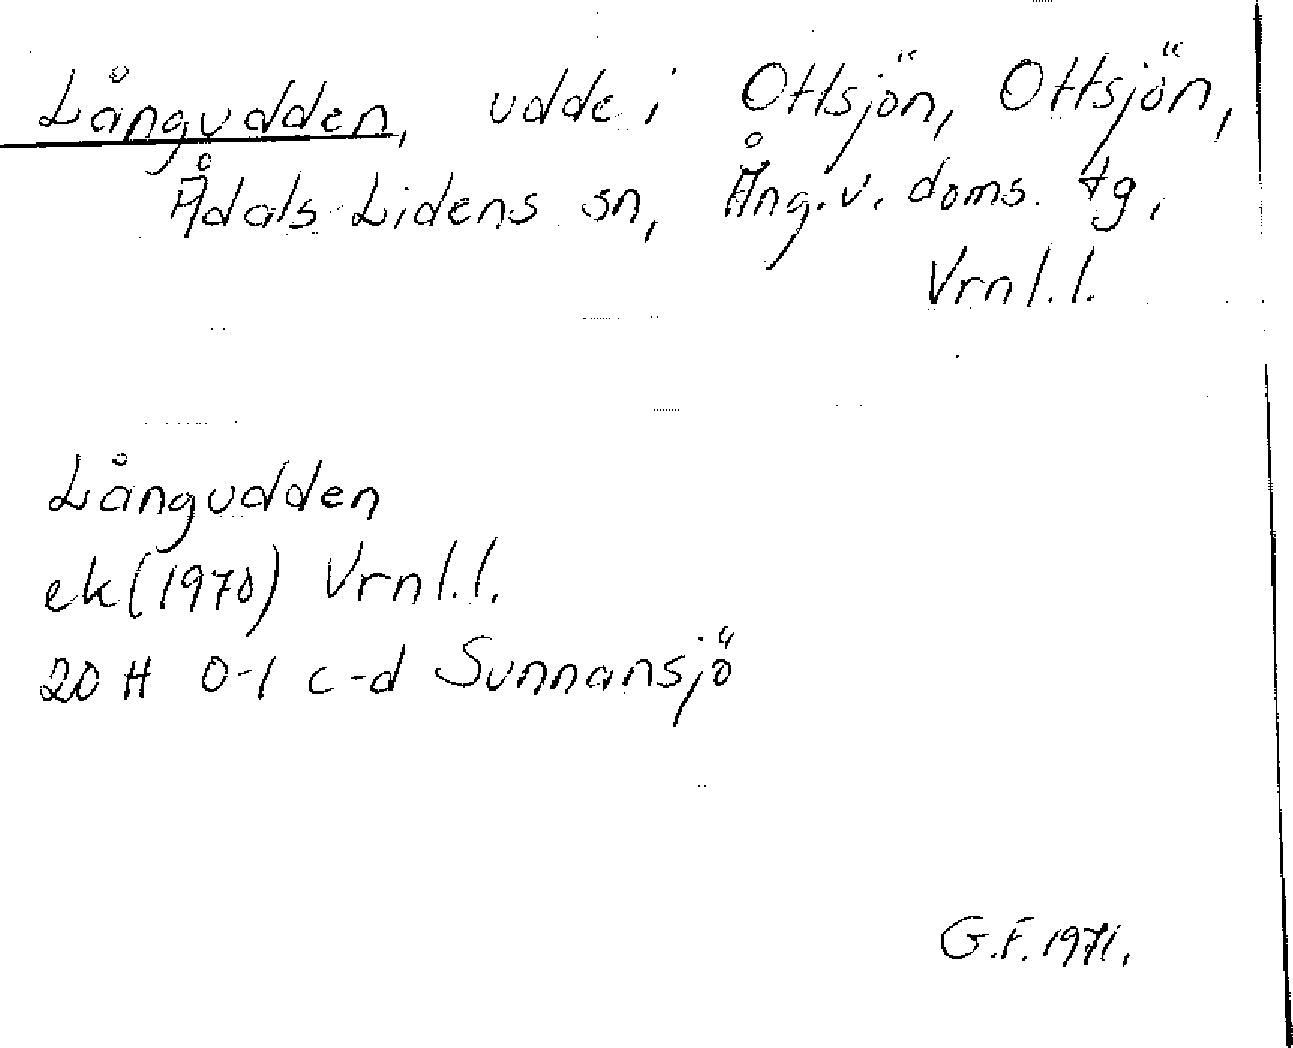 Långudden, udde i Ottsjön, Ottsjön,
Ådals-Lidens sn, Ång.v. doms. tg,
Vrnl.l.
Långudden
ek(1970) Vrnl.l.
20 H 0-1 c-d Sunnansjö
G.F. 1971.